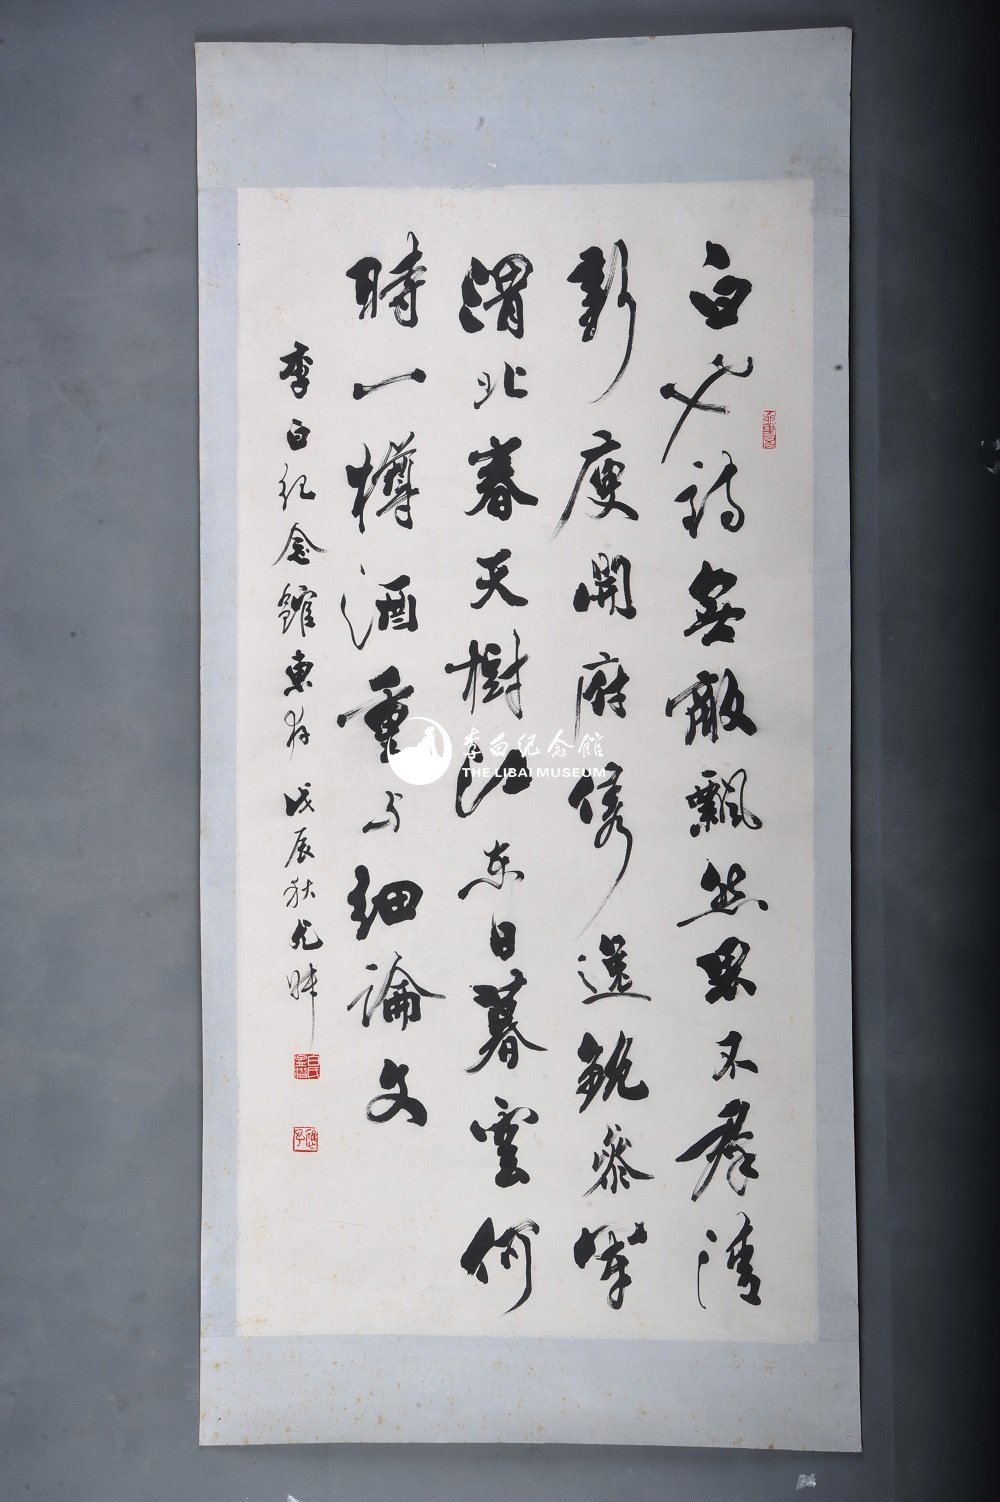 白也詩無敵飄然思不群清
新庾開府俊逸鮑參軍
渭北春天樹江東日暮雲何
時一樽酒重与細論文
李白紀念館惠存 戊辰秋
李白纪念館
THE LIBAI MUSEUM